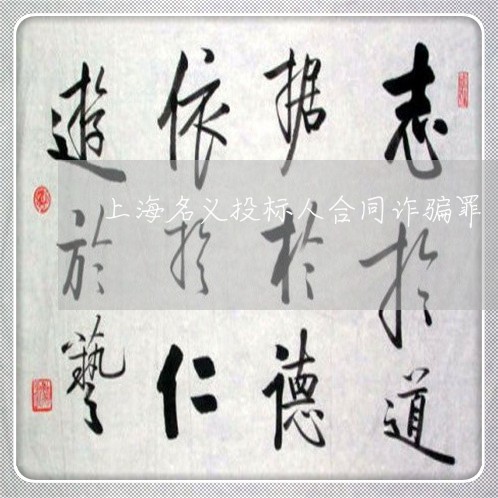 志於道
据於德
依於仁
遊於藝
上海名义投标人合同诈骗罪